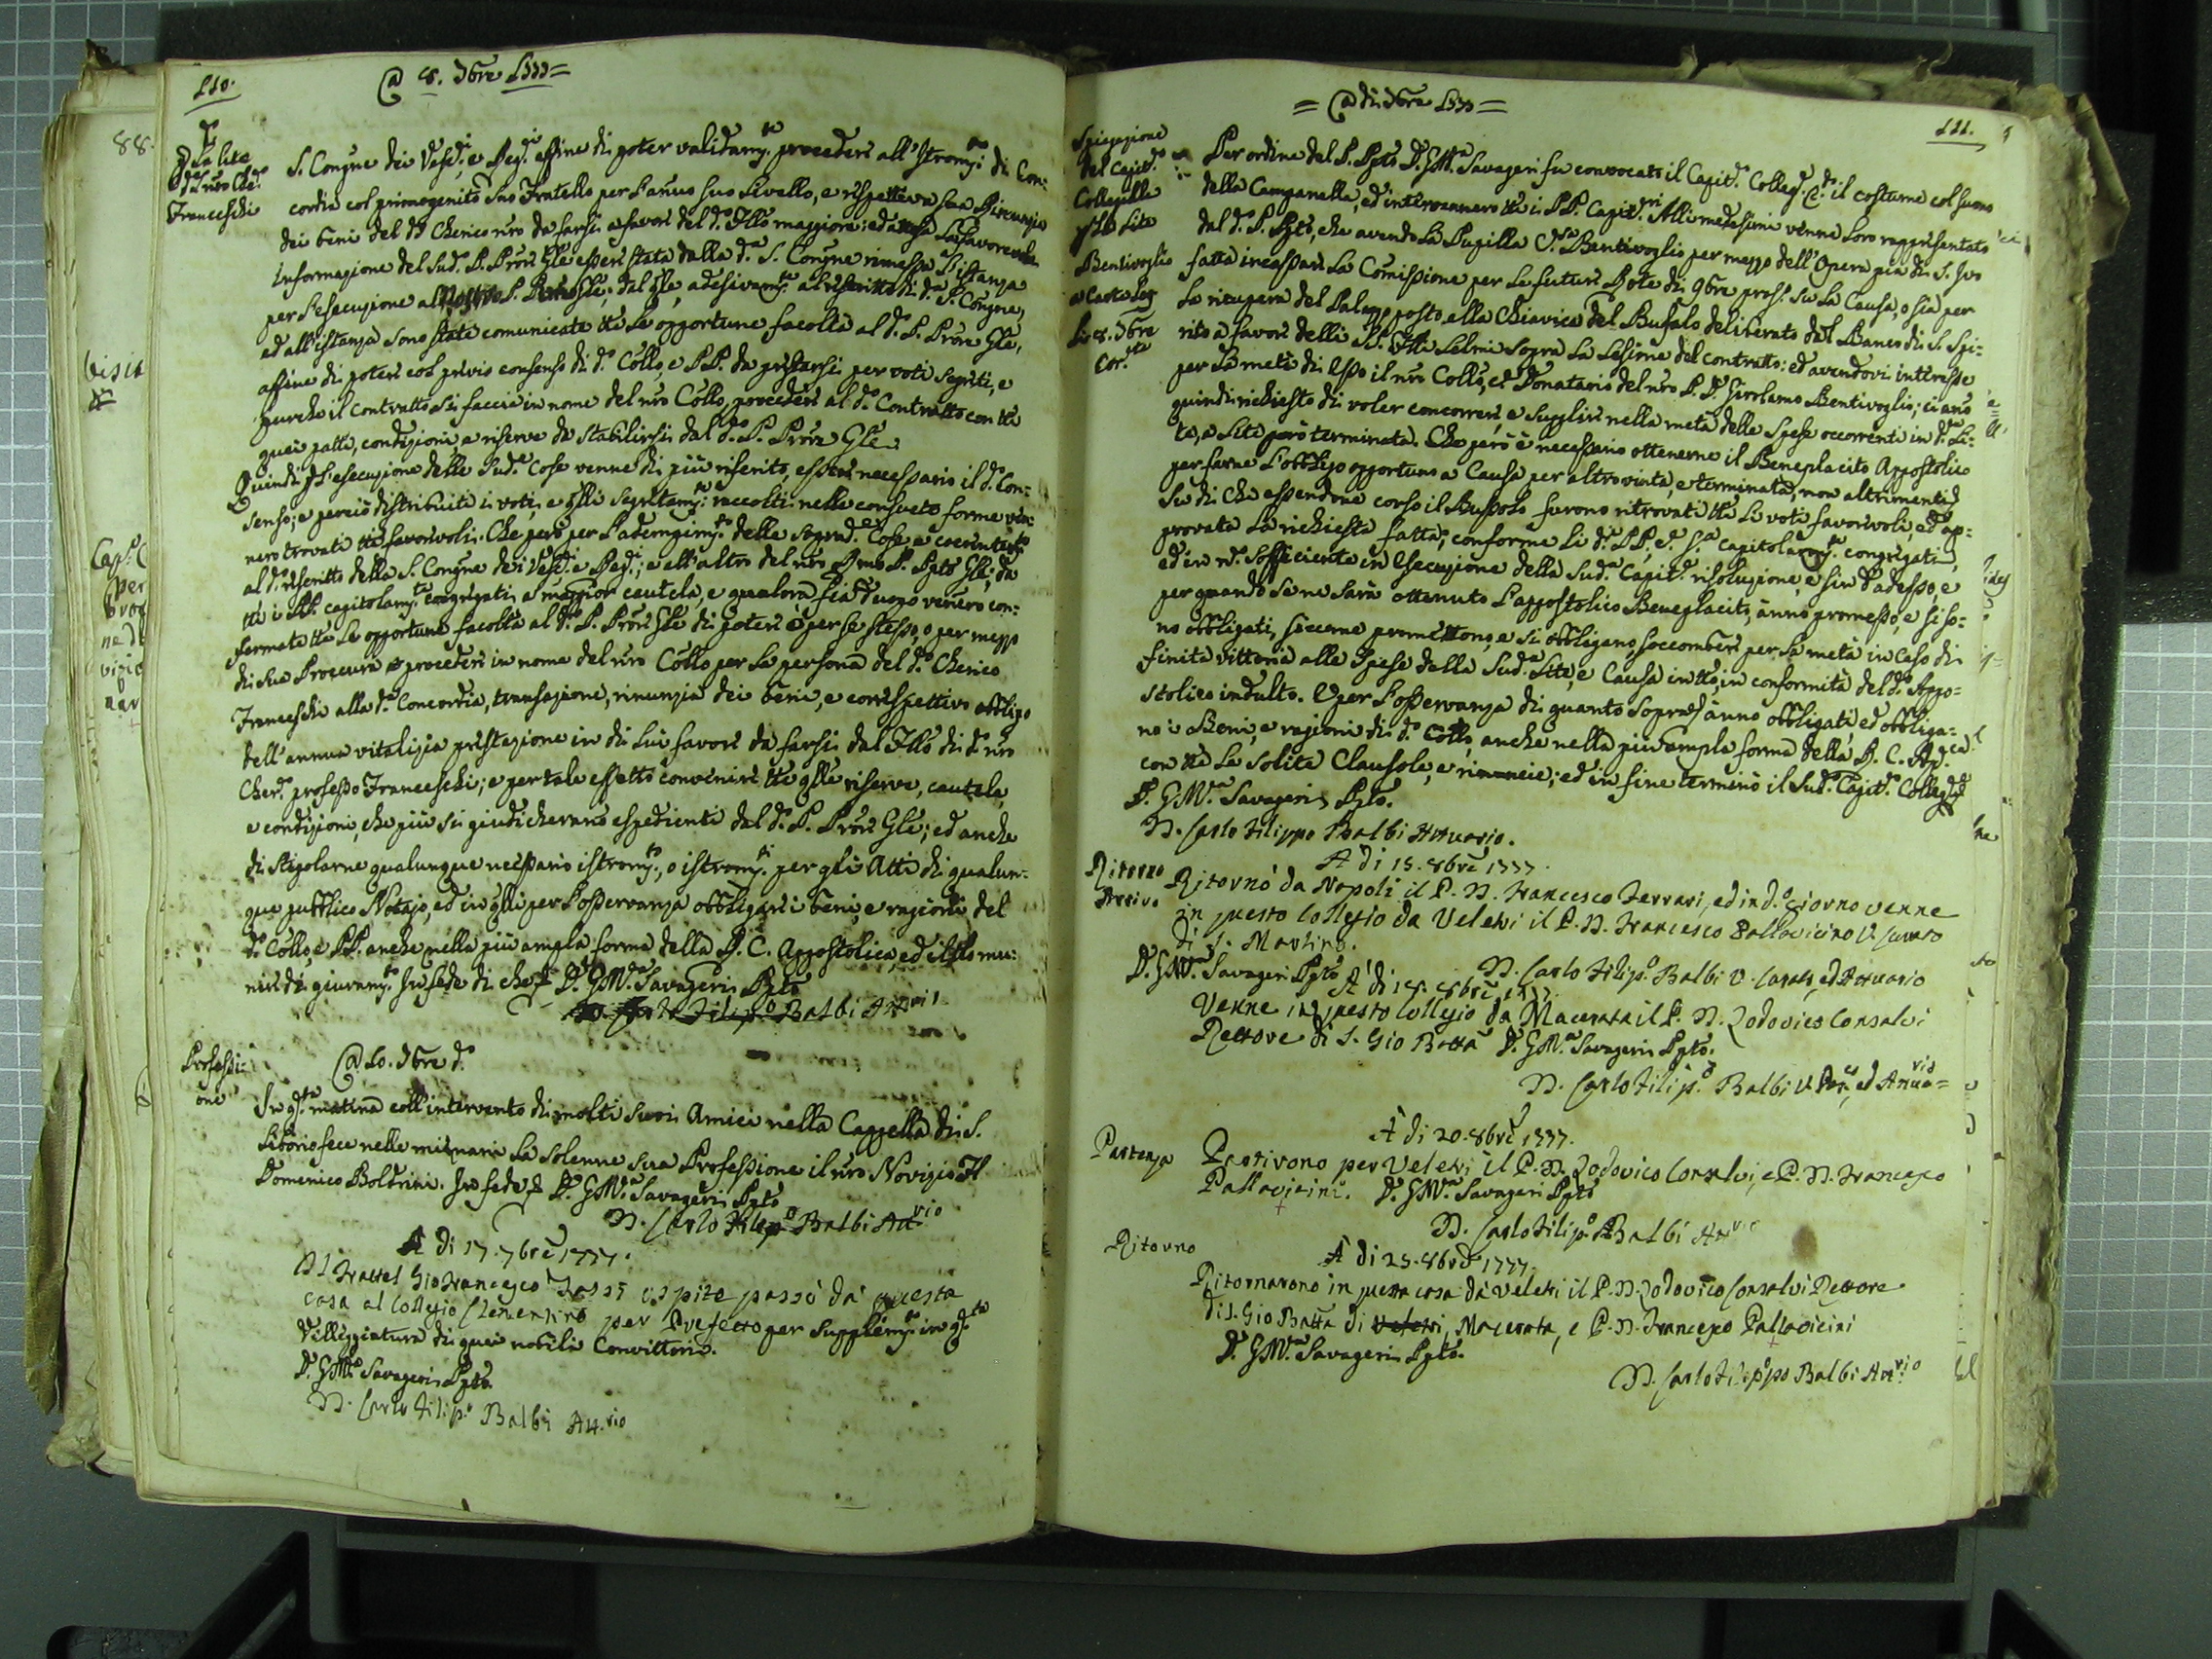 110.
@ 8. 7bre 1777=
S. Congne dei Vesci, e Regi affine di poter validamte procedere all'Istromto di Con:
cordia col primogenito suo Fratello per l'annuo suo Livello, e rispettiva sua Rinunzia
dei beni del do Cherico nro da farsi a favore del do Fllo maggiore: ed attesa la favorevole
informazione del Sudo P. Prore Gle essere stata dalla da S. Congne rimessa l'istanza
per l'esecuzione al
ed all'istanza sono state comunicate tte le opportune facoltà al do P. Prore Gle,
affine di potere col previo consenso di do Collo, e PP. da prestarsi per voti segreti, e
purche il contratto si faccia in nome del nro Collo, procedere al do Contratto con tti
quei patti, condizioni, e riserve da stabilirsi dal do P. Prore Gle.
Quindi p l'esecuzione delle Sude cose venne di più riferito, essere necessario il do Con:
senso; e perciò distribuiti i voti, e qlli segretamte raccolti nelle consuete forme ven:
nero trovati tti favorevoli. Che però per l'adempimto delle soprade Cose e coerentemte
al do rescritto della S. Congne dei Vesci e Regi; e all'altro del nro Rmo P. Ppto Gle; da
tti i PP. capitolarmte congregati a maggior cautela, e qualora sia d'uopo vennero con:
fermate tte le opportune facoltà al do P. Prore Gle di potere o per se stesso, o per mezzo
di sua Procura procedere in nome del nro Collo per la persona del do Cherico
Franceschi alla da Concordia, transazione, rinunzia dei beni, e correspettivo obbligo
dell'annua vitalizia prestazione in di lui favore da farsi dal Fllo di do nro
Cherco professo Franceschi; e per tale effetto convenire tte qlle riserve, cautele,
e condizioni, che più si giudicheranno espedienti dal do P. Prore Gle; ed anche
di stipolarne qualunque necessario istromto, o istromti per gli Atti di qualun:
que pubblico Notajo, ed in qlli per l'osservanza obbligare i beni, e ragioni del
do Collo, e PP. anche nella più ampla forma della R. C. Appostolica, ed il tto mu:
nire di giuramto. In fede di che D. G.Ma Savageri Ppto
D. Carlo Filipo Balbi Attrio
Professi:
one
@ 10. 7bre do
In qta matina coll'intervento di molti suoi Amici nella Cappella di S.
Liborio fece nelle mie mani la solenne sua Professione il nro Novizio Fl
Domenico Boldrini. In fede D. G.Ma Savageri Ppto
D. Carlo Filipo Balbi Attrio
A di 17. 7bre 1777.
Il Frattel Gio Francesco ospite passò da questa
casa al Collegio Clementino per Prefetto per supplemto in qta
Villeggiatura di quei nobili Convittori.
D. G.Ma Savageri Ppto.
D. Carlo Filipo Balbi Att.rio
111.
Spiegazione
del Capito
Collegiale
Lite
Bentivoglio
a Carte
li 8. 7bre
Per ordine del P. Ppto D. G.Ma Savageri fu convocato il Capito Collego il costume col suono
della Campanella, ed intervennero tti i PP. Capitri. Alli medesimi venne loro rappresentato
dal do P. Ppto, che avendo la Pupilla Bentivoglio per mezzo dell'Opera pia di S. Ivo
fatta incassare la Comissione per le future Rote di 9bre pross. su la Causa, o sia per
la ricupera del Palazzo posto alla Chiavica del Bufalo deliberato dal Banco di S. Spi:
rito a favore delli SS. Flli Selmi sopra la lesione del contratto: ed avendovi interesse
per la metà di esso il nro Collo, e Donatario del nro P. D. Girolamo Bentivoglio; ci anno
quindi richiesto di voler concorrere, e supplire nella metà delle spese occorrenti in da Li:
te, a lite però terminata. Che però è necessario ottenerne il Beneplacito Appostolico
per farne l'obbligo opportuno a Causa per altro vinta, e terminata, non altrimenti
Su di che essendone corso il Bussolo furono ritrovati tti li voti favorevoli, ed ap:
provata la richiesta fatta; conforme li di PP. capitolarmte congregati,
ed in no sofficiente in Esecuzione della Suda Capita risoluzione, e fin d'adesso, e
per quando se ne sarà ottenuto l'appostolico Beneplacito, anno promesso, e si so:
no obbligati, siccome promettono, e si obbligano soccombere per la metà in caso di
finita vittoria alle Spese della Suda Lite, e Causa in tto, in conformità del do Appo:
stolico indulto. E per l'osservanza di quanto sopra anno obbligati, ed obbliga:
no i Beni, e ragioni di do Collo, anche nella più ampla forma della R. C. Apca
con tte le solite Clausole, e rinuncie; ed in fine terminò il Sudo Capito Collegle
D. G.Ma Savageri Ppto.
D. Carlo Filippo Balbi Attuario.
Ritorno
Arrivo
A di 15. 8bre 1777.
Ritornò da Napoli il P. D. Francesco Ferrari, ed in do giorno venne
in questo Collegio da Veletri il P. D. Francesco Pallavicino V. Curato
di S. Martino.
D. G.Ma Savageri Ppto
D. Carlo Filipo Balbi V. Curato, ed Attuario
A di 18. 8bre 1777.
Venne in questo Collegio da Macerata il P. D. Lodovico Consalvi
Rettore di S. Gio Batta D. G.Ma Savageri Ppto.
D. Carlo Filipo Balbi V. ed Attua=rio
A di 20. 8bre 1777.
Partenza
Partirono per Veletri il P. D. Lodovico Consalvi, e P. D. Francesco
Pallavicini. D. G.Ma Savageri Ppto
D. Carlo Filipo Balbi Attrio
Ritorno
A di 25. 8bre 1777.
Ritornarono in questa casa da Veletri il P. D. Lodovico Consalvi Rettore
di S. Gio Batta di Veletri, Macerata, e P. D. Francesco Pallavicini
D. G.Ma Savageri Ppto.
D. Carlo Filippo Balbi Attrio